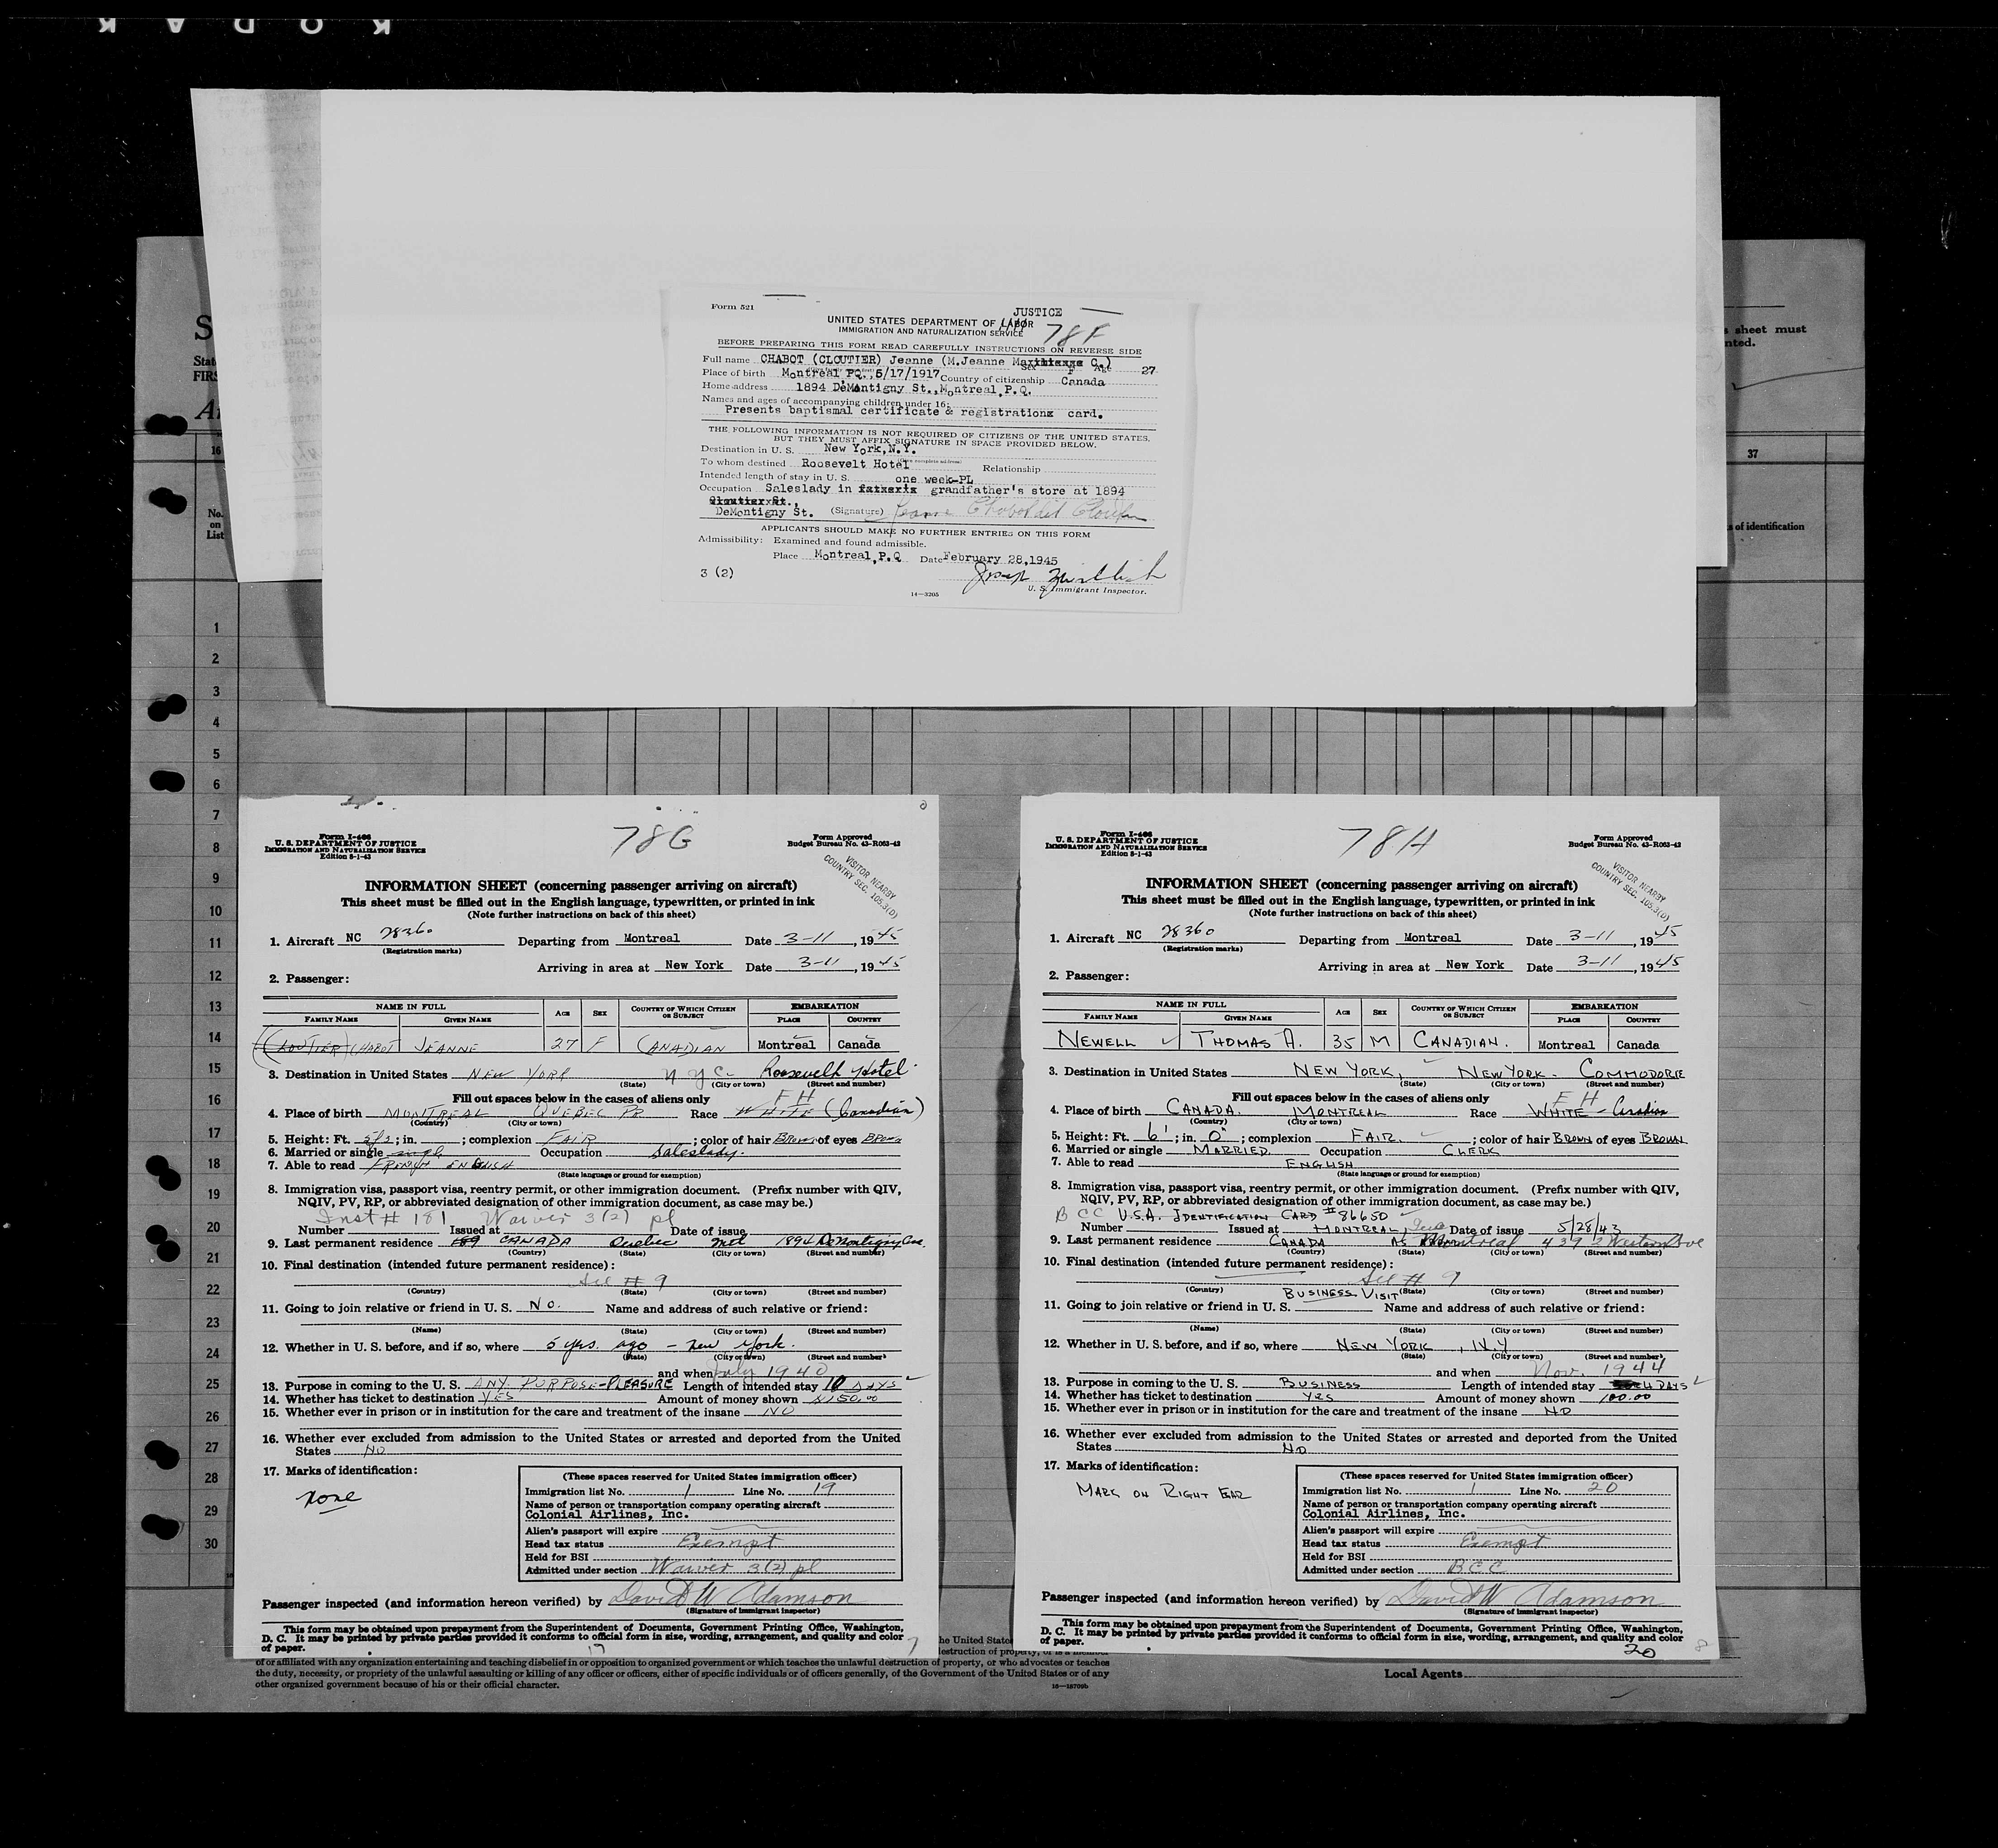 KODAK
Form 521
JUSTICE
UNITED STATES DEPARTMENT OF LABOR
78F
IMMIGRATION AND NATURALIZATION SERVICE
BEFORE PREPARING THIS FORM READ CAREFULLY INSTRUCTIONS ON REVERSE SIDE
Full name CHABOT (CLOUTIER) Jeanne (M.Jeanne C.)
Sex F Age 27
Place of birth Montreal PQ., 5/17/1917 Country of citizenship Canada
Home address 1894 DeMontigny St., Montreal, P.Q.
Names and ages of accompanying children under 16:
Presents baptismal certificate & registration card.
THE FOLLOWING INFORMATION IS NOT REQUIRED OF CITIZENS OF THE UNITED STATES,
BUT THEY MUST AFFIX SIGNATURE IN SPACE PROVIDED BELOW.
Destination in U. S. New York, N.Y.
To whom destined Roosevelt Hotel Relationship
Intended length of stay in U. S. one week-PL
Occupation Saleslady in grandfather's store at 1894
Cloutier St.,
DeMontigny St. (Signature) Jeanne Chabot dit Cloutier
APPLICANTS SHOULD MAKE NO FURTHER ENTRIES ON THIS FORM
Admissibility: Examined and found admissible.
Place Montreal, P.Q Date February 28, 1945
3 (2)
U. S. Immigrant Inspector.
14—3205
sheet must
nted.
Stat
FIRS
16
37
No.
on
List
s of identification
1
2
3
4
5
6
7
8
9
10
11
12
13
14
15
16
17
18
19
20
21
22
23
24
25
26
27
28
29
30
Form I-466
U. S. DEPARTMENT OF JUSTICE
IMMIGRATION AND NATURALIZATION SERVICE
Edition 5-1-43
78G
Form Approved
Budget Bureau No. 43-R063-42
VISITOR NEARBY
COUNTRY SEC. 105.3(D)
INFORMATION SHEET (concerning passenger arriving on aircraft)
This sheet must be filled out in the English language, typewritten, or printed in ink
(Note further instructions on back of this sheet)
1. Aircraft NC 28360 Departing from Montreal Date 3-11, 1945
(Registration marks)
Arriving in area at New York Date 3-11, 1945
2. Passenger:
NAME IN FULL AGE SEX COUNTRY OF WHICH CITIZEN OR SUBJECT EMBARKATION
FAMILY NAME GIVEN NAME PLACE COUNTRY
(CLOUTIER) CHABOT JEANNE 27 F CANADIAN Montreal Canada
3. Destination in United States NEW YORK N Y C- Roosevelt Hotel
(State) (City or town) (Street and number)
Fill out spaces below in the cases of aliens only
F H
4. Place of birth MONTREAL QUEBEC PR. Race WHITE (Canadian)
(Country) (City or town)
5. Height: Ft. 5/2; in. ; complexion FAIR; color of hair BROWN of eyes BROWN
6. Married or single single Occupation Saleslady.
7. Able to read FRENCH ENGLISH
(State language or ground for exemption)
8. Immigration visa, passport visa, reentry permit, or other immigration document. (Prefix number with QIV,
NQIV, PV, RP, or abbreviated designation of other immigration document, as case may be.)
Inst # 181 Waiver 3(2) pl
Number Issued at Date of issue
9. Last permanent residence CANADA Quebec Mtl 1894 DeMontigny
(Country) (State) (City or town) (Street and number)
10. Final destination (intended future permanent residence):
See # 9
(Country) (State) (City or town) (Street and number)
11. Going to join relative or friend in U. S. No. Name and address of such relative or friend:
(Name) (State) (City or town) (Street and number)
12. Whether in U. S. before, and if so, where 5 yrs. ago - New York.
(State) (City or town) (Street and number)
and when July 1940
13. Purpose in coming to the U. S. ANY PURPOSE-PLEASURE Length of intended stay 10 DAYS
14. Whether has ticket to destination YES Amount of money shown $150.00
15. Whether ever in prison or in institution for the care and treatment of the insane NO
16. Whether ever excluded from admission to the United States or arrested and deported from the United
States NO
17. Marks of identification:
none
(These spaces reserved for United States immigration officer)
Immigration list No. 1 Line No. 19
Name of person or transportation company operating aircraft
Colonial Airlines, Inc.
Alien's passport will expire
Head tax status Exempt
Held for BSI
Admitted under section Waiver 3(2) pl
Passenger inspected (and information hereon verified) by David W Adamson
(Signature of immigrant inspector)
This form may be obtained upon prepayment from the Superintendent of Documents, Government Printing Office, Washington,
D. C. It may be printed by private parties provided it conforms to official form in size, wording, arrangement, and quality and color
of paper.
Form I-466
U. S. DEPARTMENT OF JUSTICE
IMMIGRATION AND NATURALIZATION SERVICE
Edition 5-1-43
78H
Form Approved
Budget Bureau No. 43-R063-42
VISITOR NEARBY
COUNTRY SEC. 105.3(D)
INFORMATION SHEET (concerning passenger arriving on aircraft)
This sheet must be filled out in the English language, typewritten, or printed in ink
(Note further instructions on back of this sheet)
1. Aircraft NC 28360 Departing from Montreal Date 3-11, 1945
(Registration marks)
Arriving in area at New York Date 3-11, 1945
2. Passenger:
NAME IN FULL AGE SEX COUNTRY OF WHICH CITIZEN OR SUBJECT EMBARKATION
FAMILY NAME GIVEN NAME PLACE COUNTRY
NEWELL THOMAS A. 35 M CANADIAN. Montreal Canada
3. Destination in United States NEW YORK, NEW YORK - COMMODORE
(State) (City or town) (Street and number)
Fill out spaces below in the cases of aliens only
F H
4. Place of birth CANADA. MONTREAL Race WHITE - Canadian
(Country) (City or town)
5. Height: Ft. 6'; in. 0"; complexion FAIR.; color of hair BROWN of eyes BROWN
6. Married or single MARRIED. Occupation CLERK
7. Able to read ENGLISH
(State language or ground for exemption)
8. Immigration visa, passport visa, reentry permit, or other immigration document. (Prefix number with QIV,
NQIV, PV, RP, or abbreviated designation of other immigration document, as case may be.)
B C C U.S.A. IDENTIFICATION CARD #86650
Number Issued at MONTREAL, Que Date of issue 5/28/43
9. Last permanent residence CANADA Montreal 4392 Western Ave
(Country) (State) (City or town) (Street and number)
10. Final destination (intended future permanent residence):
See # 9
(Country) (State) (City or town) (Street and number)
BUSINESS VISIT
11. Going to join relative or friend in U. S. Name and address of such relative or friend:
(Name) (State) (City or town) (Street and number)
12. Whether in U. S. before, and if so, where NEW YORK, N.Y
(State) (City or town) (Street and number)
and when Nov. 1944
13. Purpose in coming to the U. S. BUSINESS Length of intended stay 4 DAYS
14. Whether has ticket to destination YES Amount of money shown 100.00
15. Whether ever in prison or in institution for the care and treatment of the insane NO
16. Whether ever excluded from admission to the United States or arrested and deported from the United
States NO
17. Marks of identification:
MARK ON RIGHT EAR
(These spaces reserved for United States immigration officer)
Immigration list No. 1 Line No. 20
Name of person or transportation company operating aircraft
Colonial Airlines, Inc.
Alien's passport will expire
Head tax status Exempt
Held for BSI
Admitted under section BCC
Passenger inspected (and information hereon verified) by David W Adamson
(Signature of immigrant inspector)
This form may be obtained upon prepayment from the Superintendent of Documents, Government Printing Office, Washington,
D. C. It may be printed by private parties provided it conforms to official form in size, wording, arrangement, and quality and color
of paper.
20
he United State
of or affiliated with any organization entertaining and teaching disbelief in or opposition to organized government or which teaches the unlawful destruction of property, or who advocates or teaches
the duty, necessity, or propriety of the unlawful assaulting or killing of any officer or officers, either of specific individuals or of officers generally, of the Government of the United States or of any
other organized government because of his or their official character.
16—18709b
Local Agents